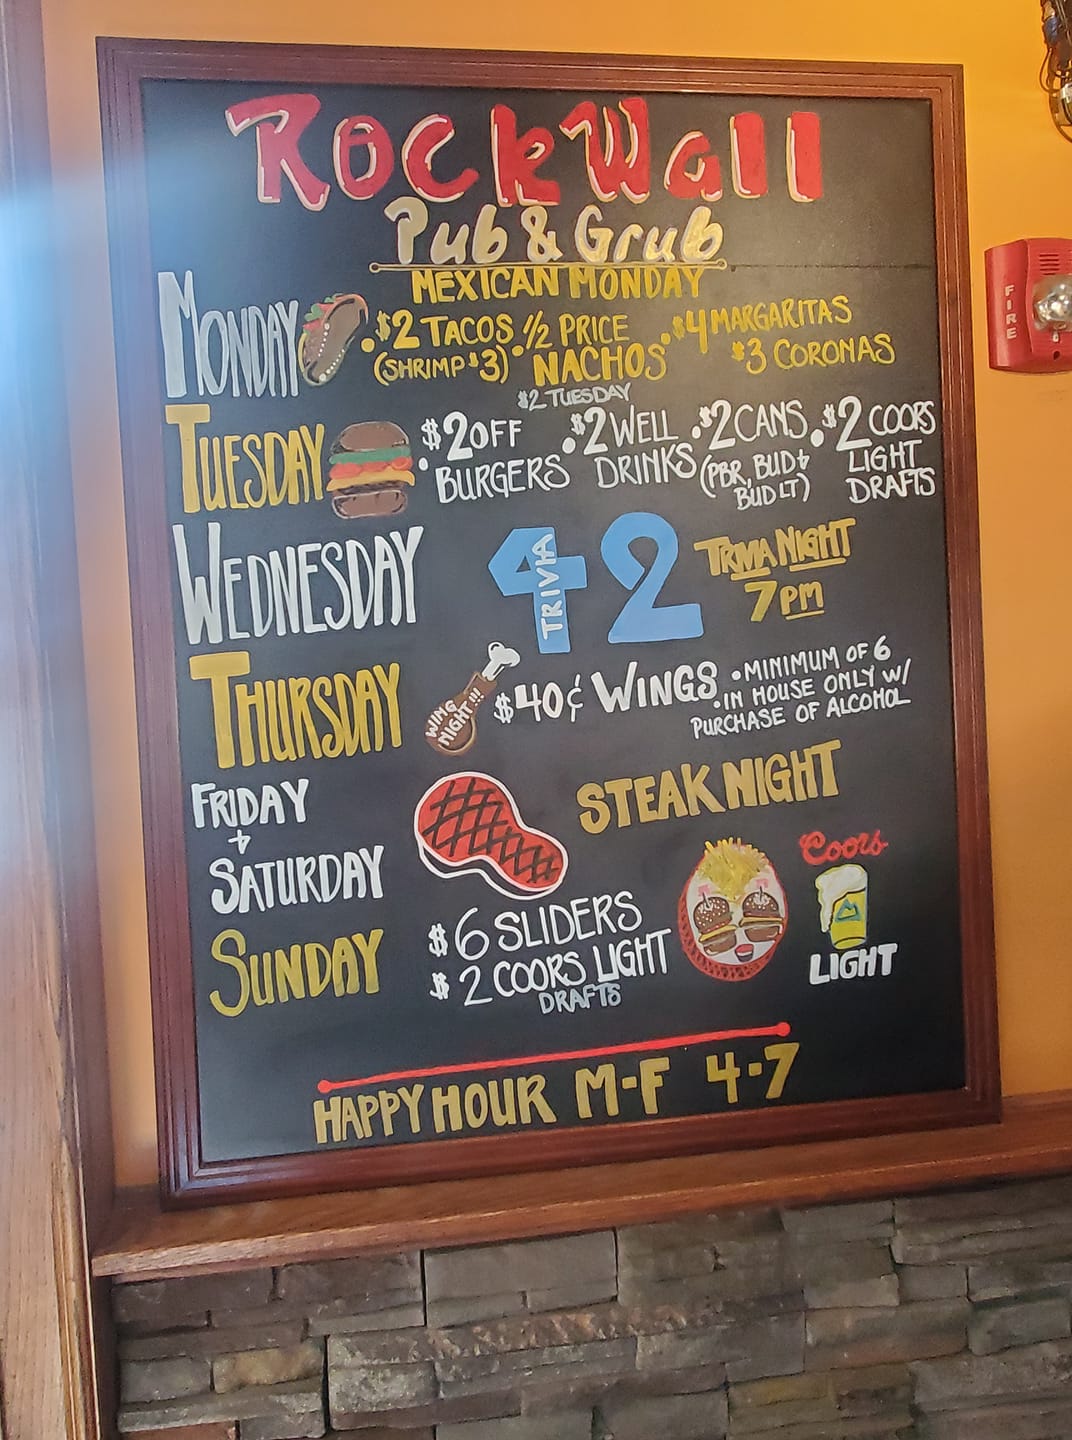 RockWall
Pub & Grub
MEXICAN MONDAY
MONDAY
• $2 TACOS
(SHRIMP $3)
• 1/2 PRICE
NACHOS
• $4 MARGARITAS
$3 CORONAS
$2 TUESDAY
TUESDAY
• $2 OFF
BURGERS
• $2 WELL
DRINKS
• $2 CANS
(PBR, BUD &
BUD LT)
• $2 COORS
LIGHT
DRAFTS
WEDNESDAY
42
TRIVIA
TRIVIA NIGHT
7 PM
THURSDAY
WING
NIGHT!!!
$40¢ WINGS
• MINIMUM OF 6
• IN HOUSE ONLY W/
PURCHASE OF ALCOHOL
FRIDAY
&
SATURDAY
STEAK NIGHT
SUNDAY
$6 SLIDERS
$2 COORS LIGHT
DRAFTS
Coors
LIGHT
HAPPY HOUR M-F 4-7
FIRE